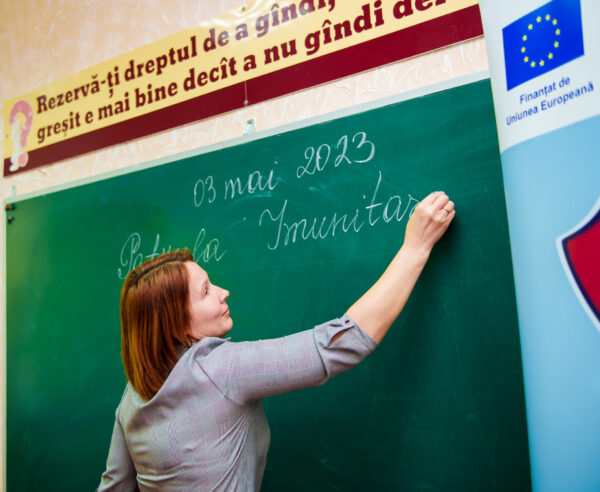 Rezervă-ți dreptul de a gîndi,
a gîndi
greșit e mai bine decît a nu gîndi
Finanțat de
Uniunea Europeană
03 mai 2023
Patrula Imunitas